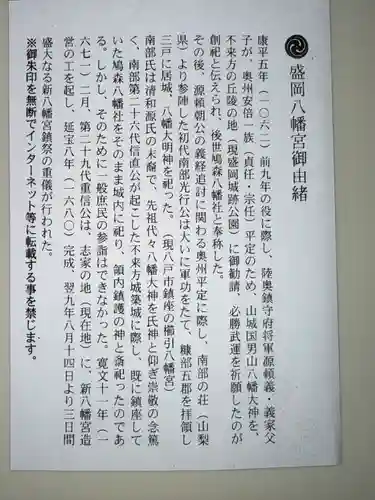 盛岡八幡宮御由緒
康平五年（一〇六二）前九年の役に際し、陸奥鎮守府将軍源頼義・義家父
子が、奥州安倍一族（貞任・宗任）平定のため、山城国男山八幡大神を、
不来方の丘陵の地（現盛岡城跡公園）に御勧請、必勝武運を祈願したのが
創祀と伝えられ、後世鳩森八幡社と奉称した。
その後、源頼朝公の義経追討に関わる奥州平定に際し、南部の荘（山梨
県）より参陣した初代南部光行公は大いに軍功をたて、糠部五郡を拝領し
三戸に居城、八幡大明神を祀った。（現八戸市鎮座の櫛引八幡宮）
南部氏は清和源氏の末裔で、先祖代々八幡大神を氏神と仰ぎ崇敬の念篤
く、南部第二十六代信直公が起こした不来方城築城に際し、既に鎮座して
いた鳩森八幡社をそのまま城内に祀り、領内鎮護の神と斎祀ったのであ
る。しかし、そのために一般庶民の参詣はできなかった。寛文十一年（一
六七一）二月、第二十九代重信公は、志家の地（現在地）に、新八幡宮造
営の工を起し、延宝八年（一六八〇）完成、翌九年八月十四日より三日間
盛大なる新八幡宮鎮祭の重儀が行われた。
※御朱印を無断でインターネット等に転載する事を禁じます。